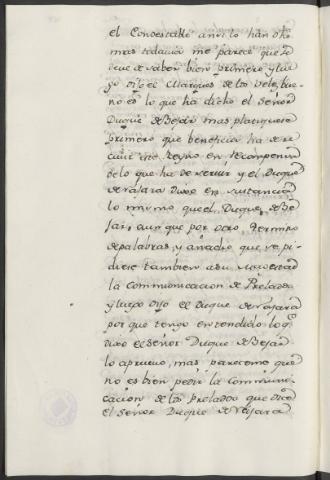 el Condestable ansi lo han dho
mas todavia me parece que se
deve de saber bien primero y lue
go dijo el Marques de los Velez bue
no es lo que ha dicho el Señor
Duque de Bejar mas platiquese
primero que beneficio ha de re
civir este Reyno en recompensa
de lo que ha de servir y el Duque
de Najara dixo en sustancia
lo mismo que el Duque de Be
jar, aunque por otro termino
de palabras, y añadio que se pi
diese tambien a su Magestad
la Communicacion de Prelados
y luego dijo el Duque de Najara
por que tengo entendido lo q.e
dixo el señor Duque de Bejar
lo apruevo, mas pareceme que
no es bien pedir la communi
cacion de los prelados que dice
el señor Duque de Najara